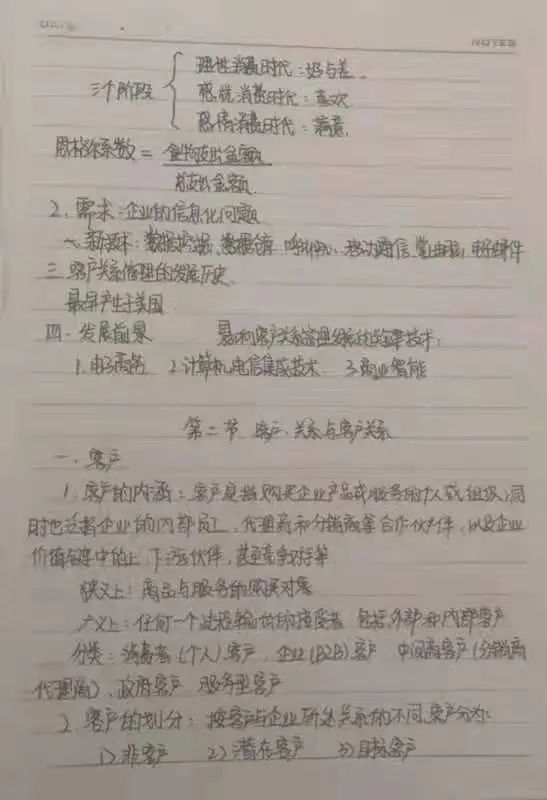 三个阶段
理性消费时代：好与差。
感觉消费时代：喜欢
感情消费时代：满意
恩格尔系数 = 食物支出金额
总支出金额
2. 需求：企业的信息化问题
新技术：数据挖掘、数据仓库 移动通信、掌上电脑、电子邮件
三. 客户关系管理的发展历史
最早产生于美国
四. 发展前景 影响客户关系管理的效果技术：
1. 电子商务 2 计算机电信集成技术 3. 商业智能
第二节 客户、关系与客户关系
一. 客户
1. 客户的内涵：客户是指购买企业产品或服务的个人或组织，同
时也泛指企业的内部员工、代理商和分销商等合作伙伴，以及企业
价值链中的上、下游伙伴，甚至竞争对手等
狭义上：商品与服务的购买对象
广义上：任何一个过程输出的接受者 包括外部和内部客户
分类：消费者（个人）客户、企业（B2B）客户 中间商客户（分销商
代理商）、政府客户 服务型客户
2. 客户的划分：按客户与企业所处关系的不同，客户分为：
1) 非客户 2) 潜在客户 3) 目标客户